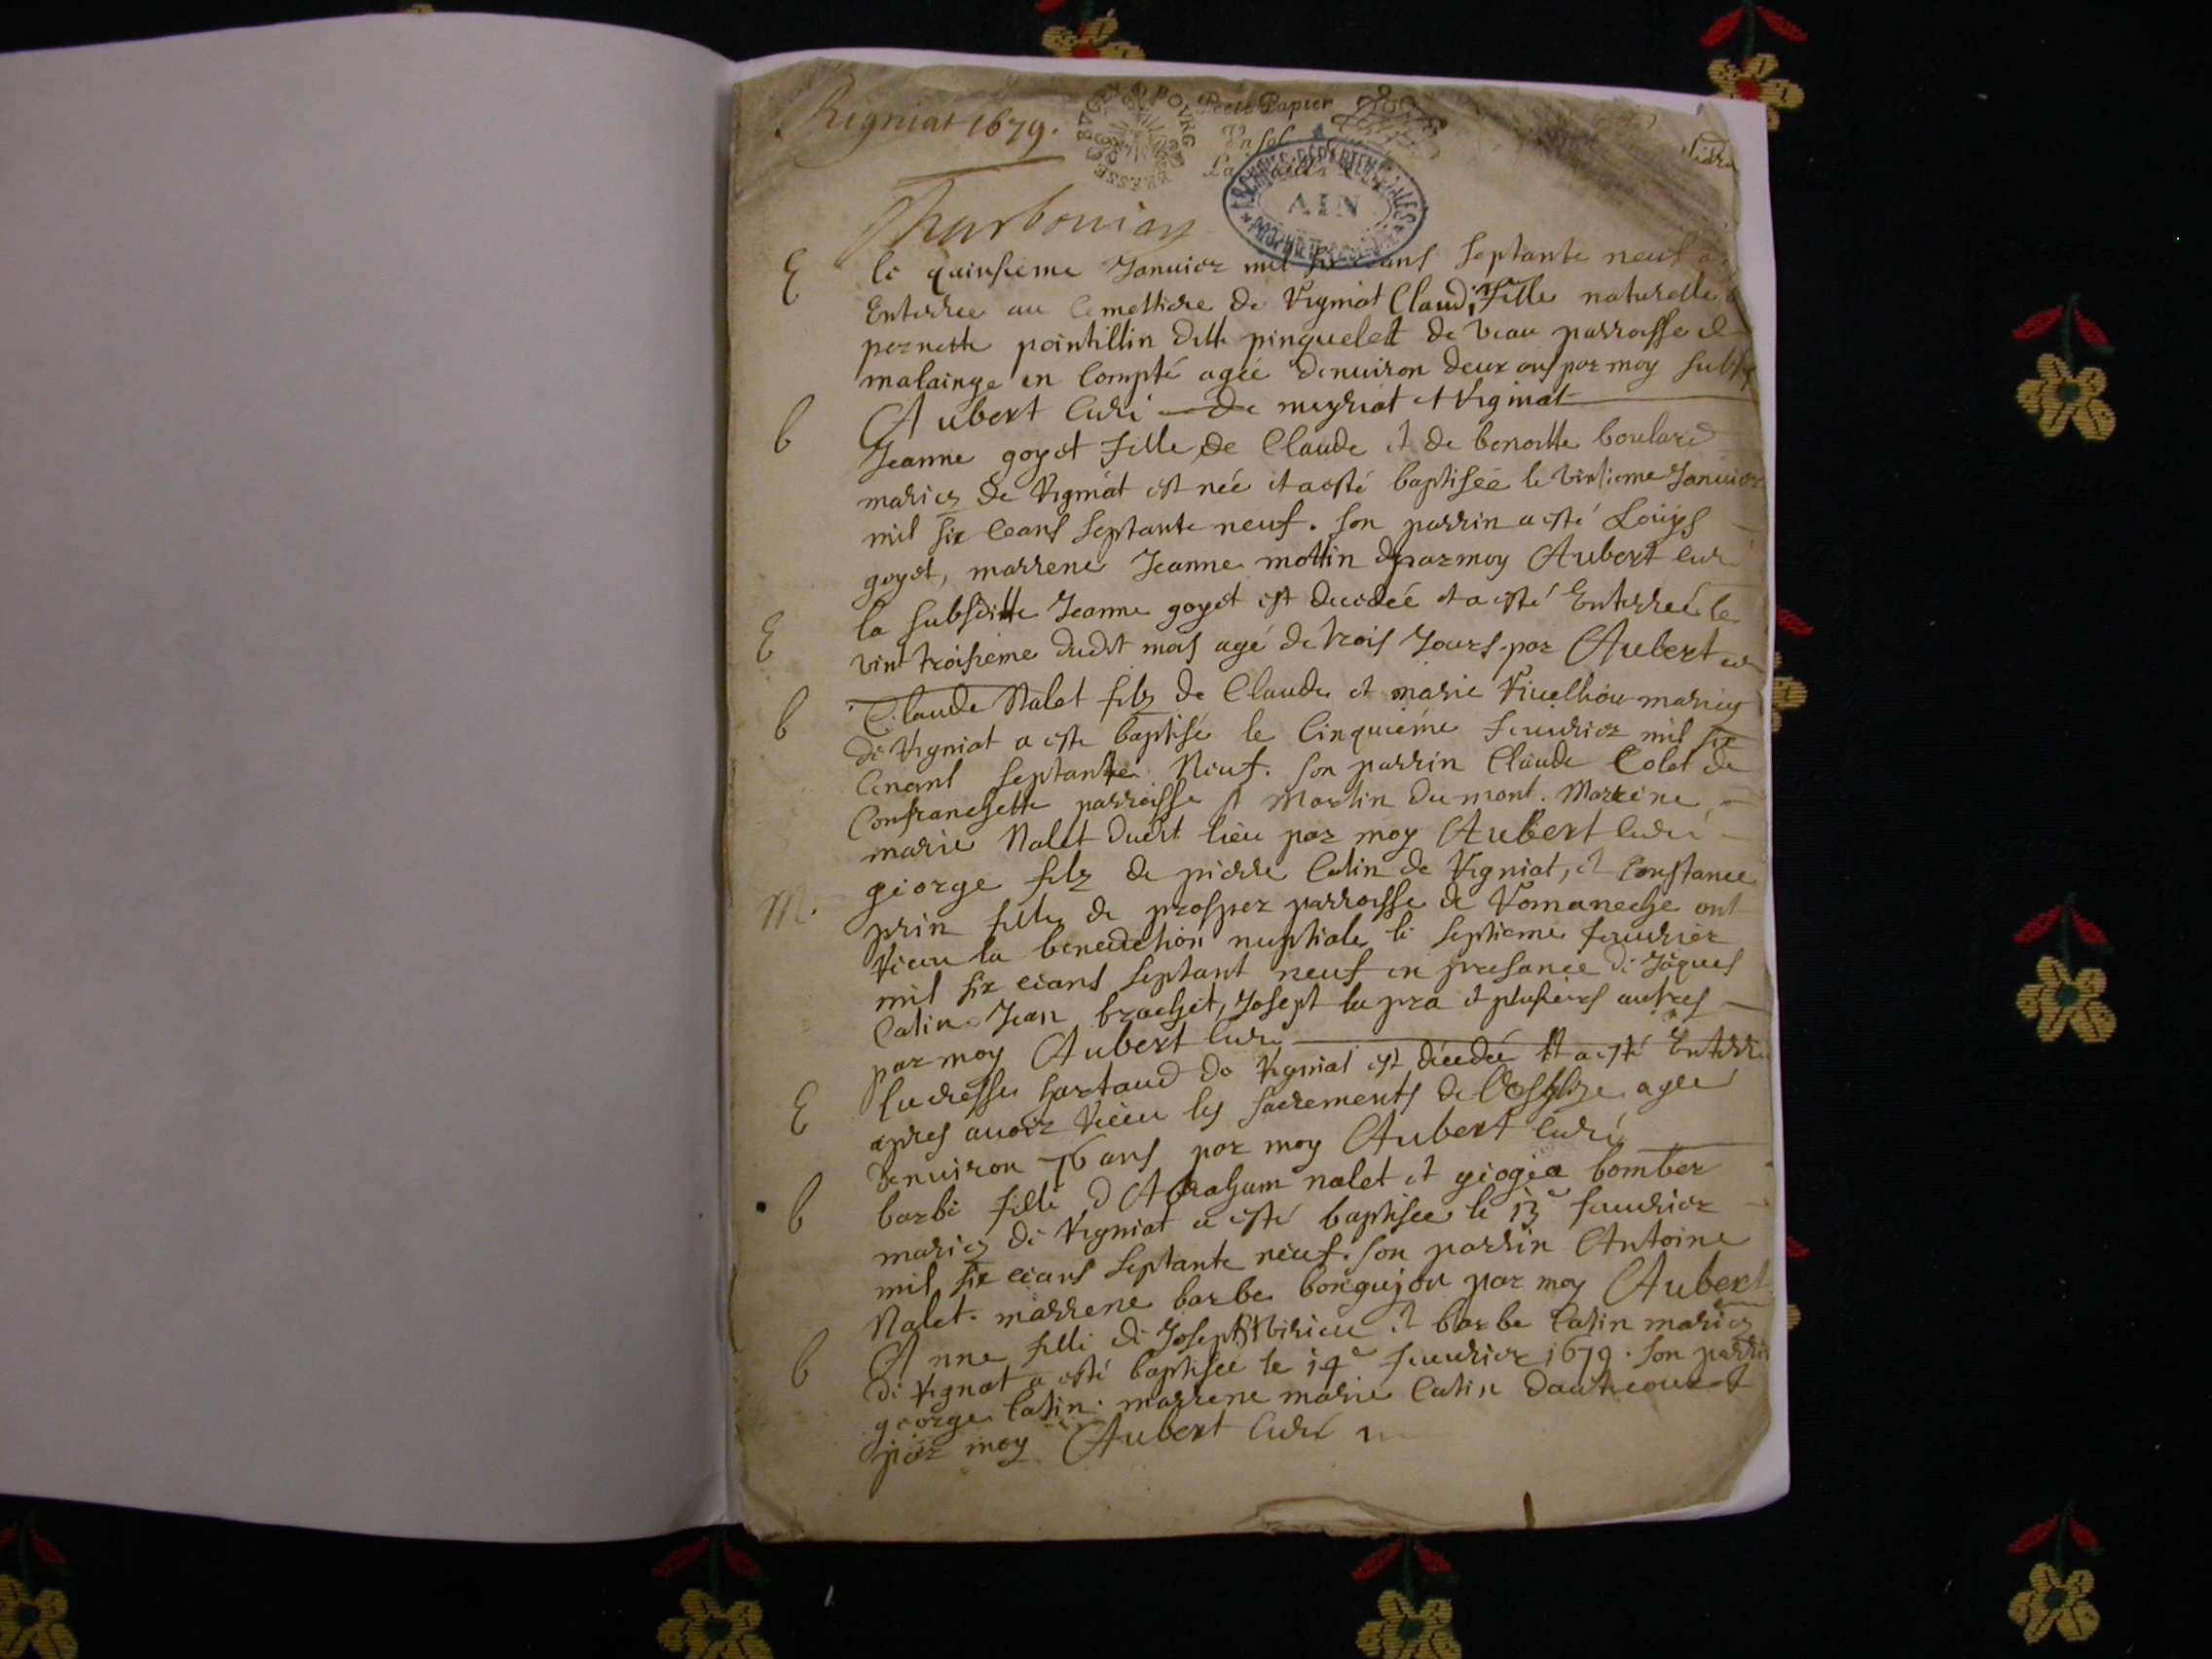 Rigniat 1679.
BVGEY BOVRG BRESSE
Petit Papier
Vn sol
La feuille
ARCHIVES DÉPARTEMENTALES
AIN
Charbonier
E le quinsieme Januier mil six ceans septante neuf a
Enterree au Cemettiere de Rigniat Claudi fille naturelle
pernette pointillin ditte pinquelet de veau parroisse de
malainge en Compté agée denuiron deux ans par moy
Aubert Curé de meyriat et Rigniat
b Jeanne goyet fille de Claude et de benoitte boulard
mariez de Rigniat est née et a esté baptisée le vintieme Januier
mil six ceans septante neuf. son parrin a esté Loüys
goyet, marrene Jeanne mottin par moy Aubert curé
E la subsditte Jeanne goyet est decedée et a esté Enterreé le
vint troisieme dudit mois agé de trois Jours par Aubert
b Claude Nalet filz de Claude et marie mariez
de Rigniat a esté baptisé le Cinquiéme feurier mil six
Ceneant septante Neuf. son parrin Claude Colet de
Confranchette parroisse st Martin du mont. Marrine
marie Nalet dudit lieu par moy Aubert Curé
M. george filz de pierre Catin de Rigniat, et Constance
prin fille de prosper parroisse de Romaneche ont
Receu la benediction nuptiale le septieme feurier
mil six ceans septant neuf en presance de Jâques
Catin Jean brachet, Josept la pra et plusieurs autres
par moy Aubert Curé
E lucresse hartaud de Rigniat est décedée et a esté Enterrée
apres auoir Receu les sacrements de l'Esglize agee
denuiron 76 ans par moy Aubert Curé
b barbe fille d'Abraham nalet et giogea bomber
mariez de Rigniat a esté baptisee le 13e feurier
mil six ceans septante neuf. son parrin Antoine
Nalet. marrene barbe bongujou par moy Aubert
b Anne fille de Joseph et barbe Catin mariez
de Rigniat a esté baptisée le 14e feurier 1679. son parrin
george Catin. marrene marie Catin dautecourt
par moy Aubert Curé